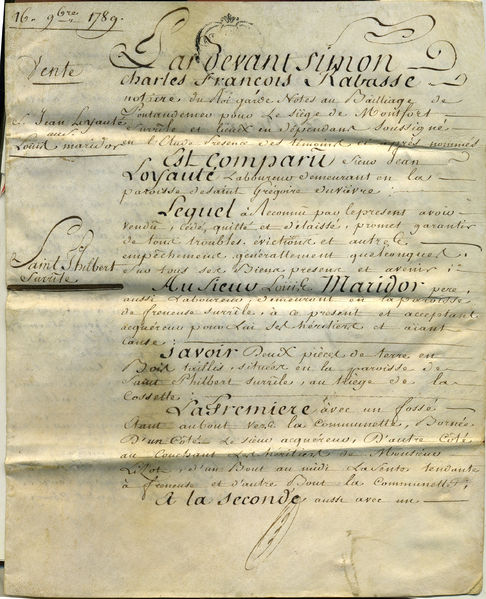 16. 9bre 1789.
Vente
Sr. Jean Loyauté
au Sr
Louis maridor
Saint Philbert
surrile
Par devant Simon
charles François Rabasse
notaire du Roi garde Notes au Bailliage de
Pontaudemer pour Le siège de Montfort
surrile et Lieux en dépendans soussigné
en l'Etude Presence des temoins cy après nommés
Est Comparu Sieur Jean
Loyauté Laboureur demeurant en la
paroisse de saint Grégoire du vièvre :
Lequel a Reconnu par le present avoir
vendu, cédé, quitté et délaissé, promet garantir
de tous troubles, évictions et autres
empêchemens généralement quelconques,
sur tous ses Biens present et avenir :
Au Sieur Louis Maridor pere,
aussi Laboureur demeurant en la paroisse
de freneuse surrile, à ce présent et acceptant
acquéreur pour Lui ses héritiers et aiant
cause :
Savoir Deux pièces de terre en
Bois taillis, situées en la paroisse de
Saint Philbert surrile, au triege de la
Cossette :
La Premiere avec un fossé
étant au bout vers la communette, Bornée
D'un Côté Le sieur acquéreur, D'autre Côté
au Couchant Les héritiers de Monsieur
d'un Bout au midi La sente tendante
à freneuse et d'autre Bout la Communette ;
A la seconde aussi avec un